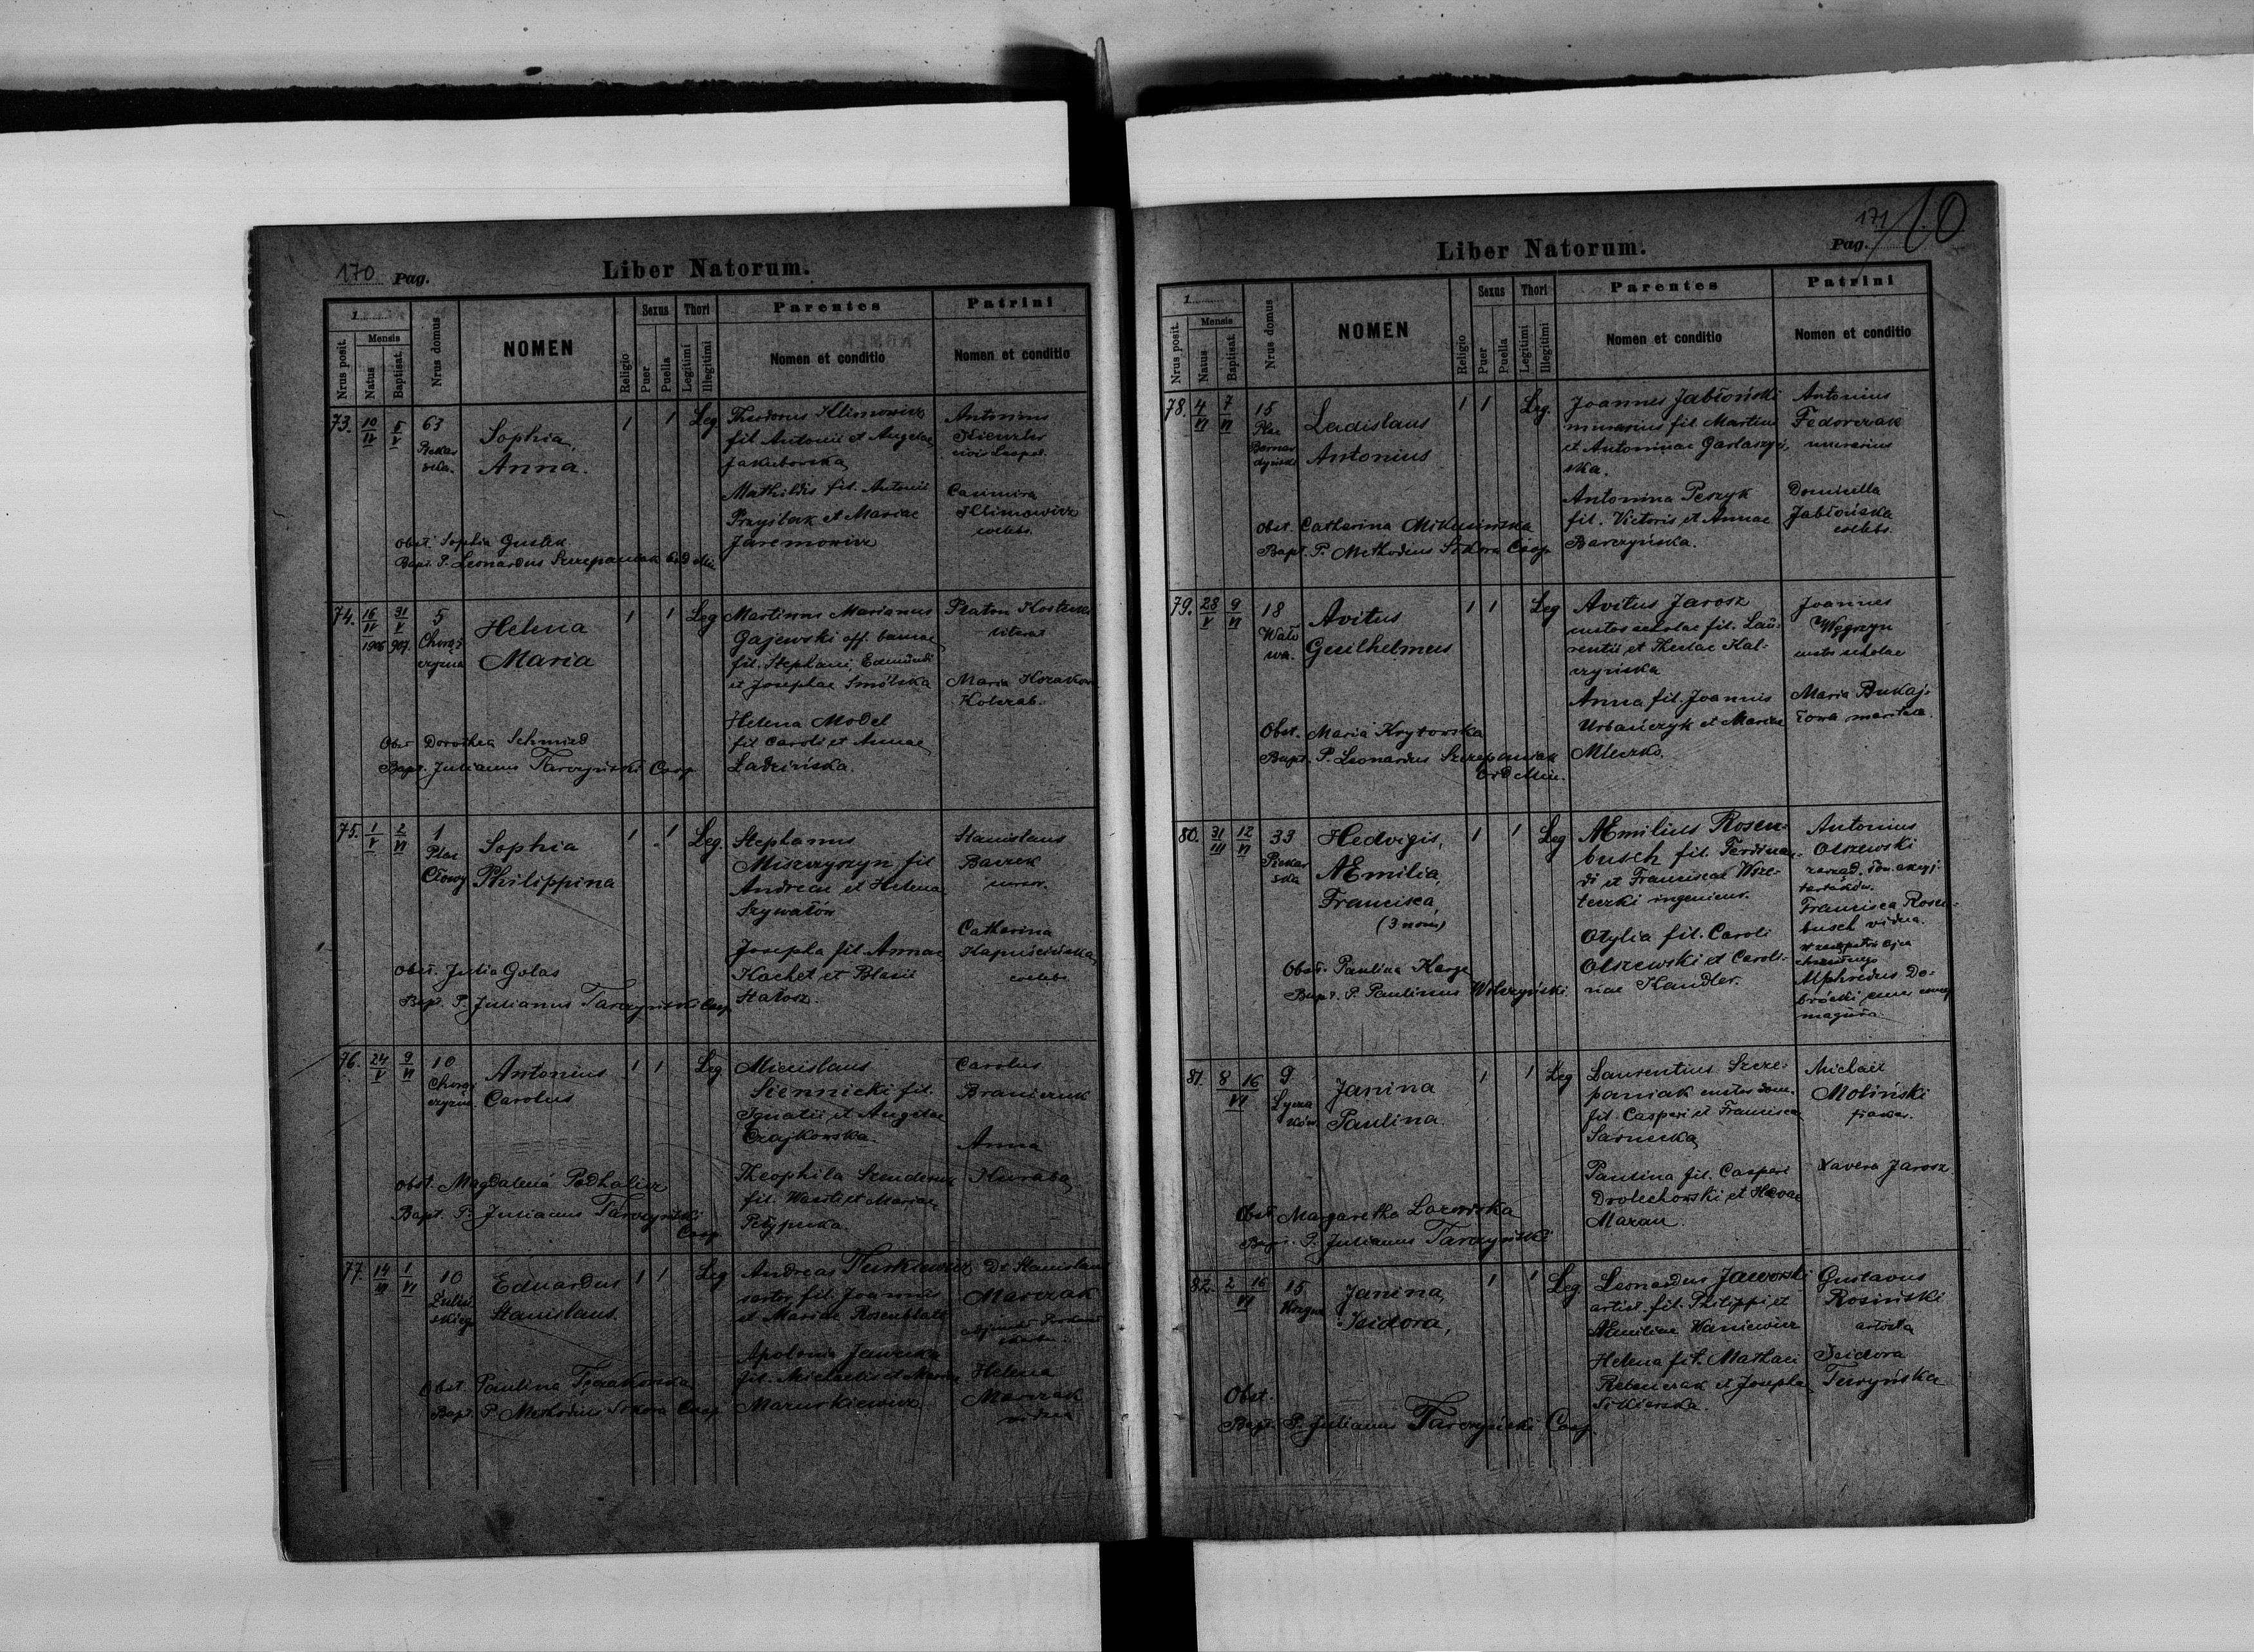 170 Pag.
Liber Natorum.
1
Nrus posit.
Mensis
Natus
Baptisat.
Nrus domus
NOMEN
Religio
Sexus
Puer
Puella
Thori
Legitimi
Illegitimi
Parentes
Nomen et conditio
Patrini
Nomen et conditio
73. 10/IV 5/V 63
Sophia,
Anna.
1 1 Leg
Theodorus Klimowicz
fil Antonii et Angelae
Jakubowska
Mathildis fil. Antonii
Przystak et Mariae
Jaremowicz
Antonius
civis Leopol.
Casimira
Klimowicz
coelebs.
Obst. Sophia Gustek
Bapt. P. Leonardus Szczepaniak Ord Min
74. 16/IV 1906 31/V 907. 5
Chorąż
czyzna
Helena
Maria
1 1 Leg
Martinus Marianus
Gajewski off. bancae
fil. Stephani, Edmundi
et Josephae Smólska
Helena Model
fil Caroli et Annae
Ładzińska.
Platon Kostecki
literat
Maria Kozakow
Obst Dorothea Schmied
Bapt. Julianus Tarczyński Coop
75. 1/V 2/VI 1
Plac
Cłowy
Sophia
Philippina
1 1 Leg.
Stephanus
Miszczyszyn fil
Andreae et Helena
Szywałów
Josepha fil Annae
Kachet et Blasii
Statosz.
Stanislaus
Baczek
cursor.
Catharina
Kapuścińska
coelebs
Obst. Julia Golas
Bapt. P. Julianus Tarczyński Coop
76. 24/V 9/VI 10
Chorąż
czyzna.
Antonius
Carolus
1 1 Leg
Miecislaus
Siennicki fil.
Ignatii et Angelae
Czajkowska.
Theophila
fil. Wasili et Mariae
Petypecka.
Carolus
Braniczuk
Anna
Kuraba
Obst. Magdalena Podhalicz
Bapt. P. Julianus Tarczyński
Coop
77. 14/III 1/VI 10
Zuliń
skiego
Eduardus
Stanislaus.
1 1 Leg
Andreas Turkiewicz
sartor, fil. Joannis
et Mariae Rosenblatt
Apolonia Jawecka
fil. Michaelis et Mariae
Mazurkiewicz
Dr Stanislaus
Marczak
Helena
Marczak
vidua
Obst. Paulina Tyczakowska
Bapt. P. Methodius Sikora Coop
Liber Natorum.
171
Pag. 10
1
Nrus posit.
Mensis
Natus
Baptisat.
Nrus domus
NOMEN
Religio
Sexus
Puer
Puella
Thori
Legitimi
Illegitimi
Parentes
Nomen et conditio
Patrini
Nomen et conditio
78. 4/VI 7/VI 15
Plac
Bernar
dyński
Ladislaus
Antonius
1 1 Leg.
Joannes Jabłoński
murarius fil Martini
et Antoninae Garlaszyń
ska.
Antonina Peszyk
fil. Victoris et Annae
Barczyńska.
Antonius
Fedorczak
murarius
Domicella
Jabłońska
coelebs.
Obst. Catharina Mikusińska
Bapt. P. Methodius Sikora Coop
79. 28/V 9/VI 18
Wało
wa.
Avitus
Guilhelmus
1 1 Leg
Avitus Jarosz
custos scholae fil. Lau-
rentii et Theclae Kal-
czyńska
Anna fil. Joannis
Urbańczyk et Mariae
Mleczko.
Joannes
Węgrzyn
custos scholae
Maria Bukaj-
łowa maritata.
Obst. Maria Krytowska
Bapt. P. Leonardus Szczepaniak
Ord Min.
80. 31/III 12/VI 33
Piekar
ska
Hedvigis,
AEmilia,
Francisca
(3 nom)
1 1 Leg
AEmilius Rosen-
busch fil. Ferdinan-
di et Franciscae Wsze-
teczki ingenieur.
Otylia fil. Caroli
Olszewski et Caroli-
nae Kandler.
Antonius
Olszewski
tartaków.
Francisca Rosen-
busch vidua.
w zastępstwie ojca
chrzestnego
Alphredus Do-
magistra.
Obst. Paulina Karge
Bapt. P. Paulinus Wilczyński
81. 8 16/VI 9
Łycza
ków.
Janina
Paulina.
1 1 Leg
Laurentius Szcze-
paniak custos dom.
fil. Casperi et Francisca
Sarnecka
Paulina fil. Casperi
Drolechowski et Hevae
Mazan.
Michael
Moliński
fiaker.
Xavera Jarosz
Obst Margaretha Lozowska
Bapt. P. Julianus Tarczyński
82. 2 16/VI 15
Janina,
Isidora,
1 1 Leg.
Leonardus Jaworski
artist. fil. Philippi et
AEmiliae Waniewicz
Helena fil. Mathaei
Rebenczak et Josepha
Sikierska.
Gustavus
Rosiński
artista
Isidora
Terzyńska
Obst.
Bapt. P. Julianus Tarczyński Coop.